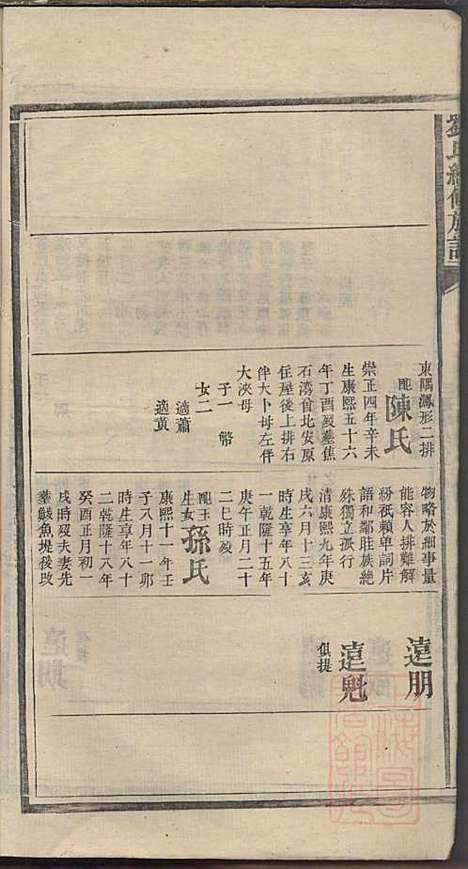 東隅鳳形二排
配
陳氏
崇正四年辛未
生康熙五十六
年丁酉歿墓焦
石灣首北安原
任屋後上排右
伴大卜母左伴
大浹母
子一 幣
女二
適蕭
適黃
物略於細事量
能容人排難解
紛祇賴單詞片
語和鄰睦族絕
殊獨立孤行
清康熙九年庚
戌六月十三亥
時生享年八十
一乾隆十五年
庚午正月二十
二巳時歿
配王
生女
孫氏
康熙十一年壬
子八月十一卯
時生享年八十
二乾隆十八年
癸酉正月初一
戌時歿夫妻先
葬鮁魚堘後改
遠朋
遠魁
俱提